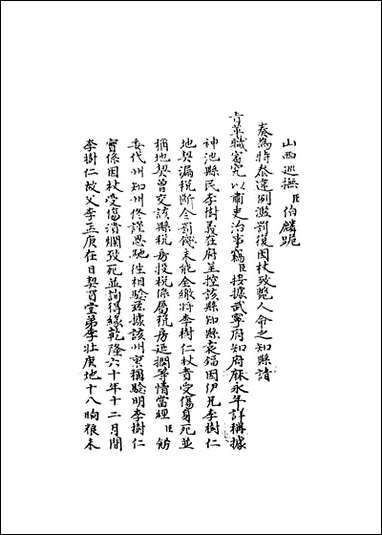 山西巡撫臣伯麟跪
奏為特叅違例濫罰復因杖致斃人命之知縣請
旨革職審究以肅吏治事竊臣接據武寧府知府蔴永年詳稱據
神池縣民李樹義在府呈控該縣知縣袁錕因伊兄李樹仁
地契漏税斷令罰錢未能全繳将李樹仁杖責受傷身死並
稱地契曾交該縣税房投税係屬税房延擱等情當經臣飭
委代州知州佟謹恩馳往相驗兹據該州禀稱驗明李樹仁
實係因杖受傷潰爛致死並詢得緣乾隆六十年十二月間
李樹仁故父李孟庚在日契買堂弟李壯庚地十八晌粮未